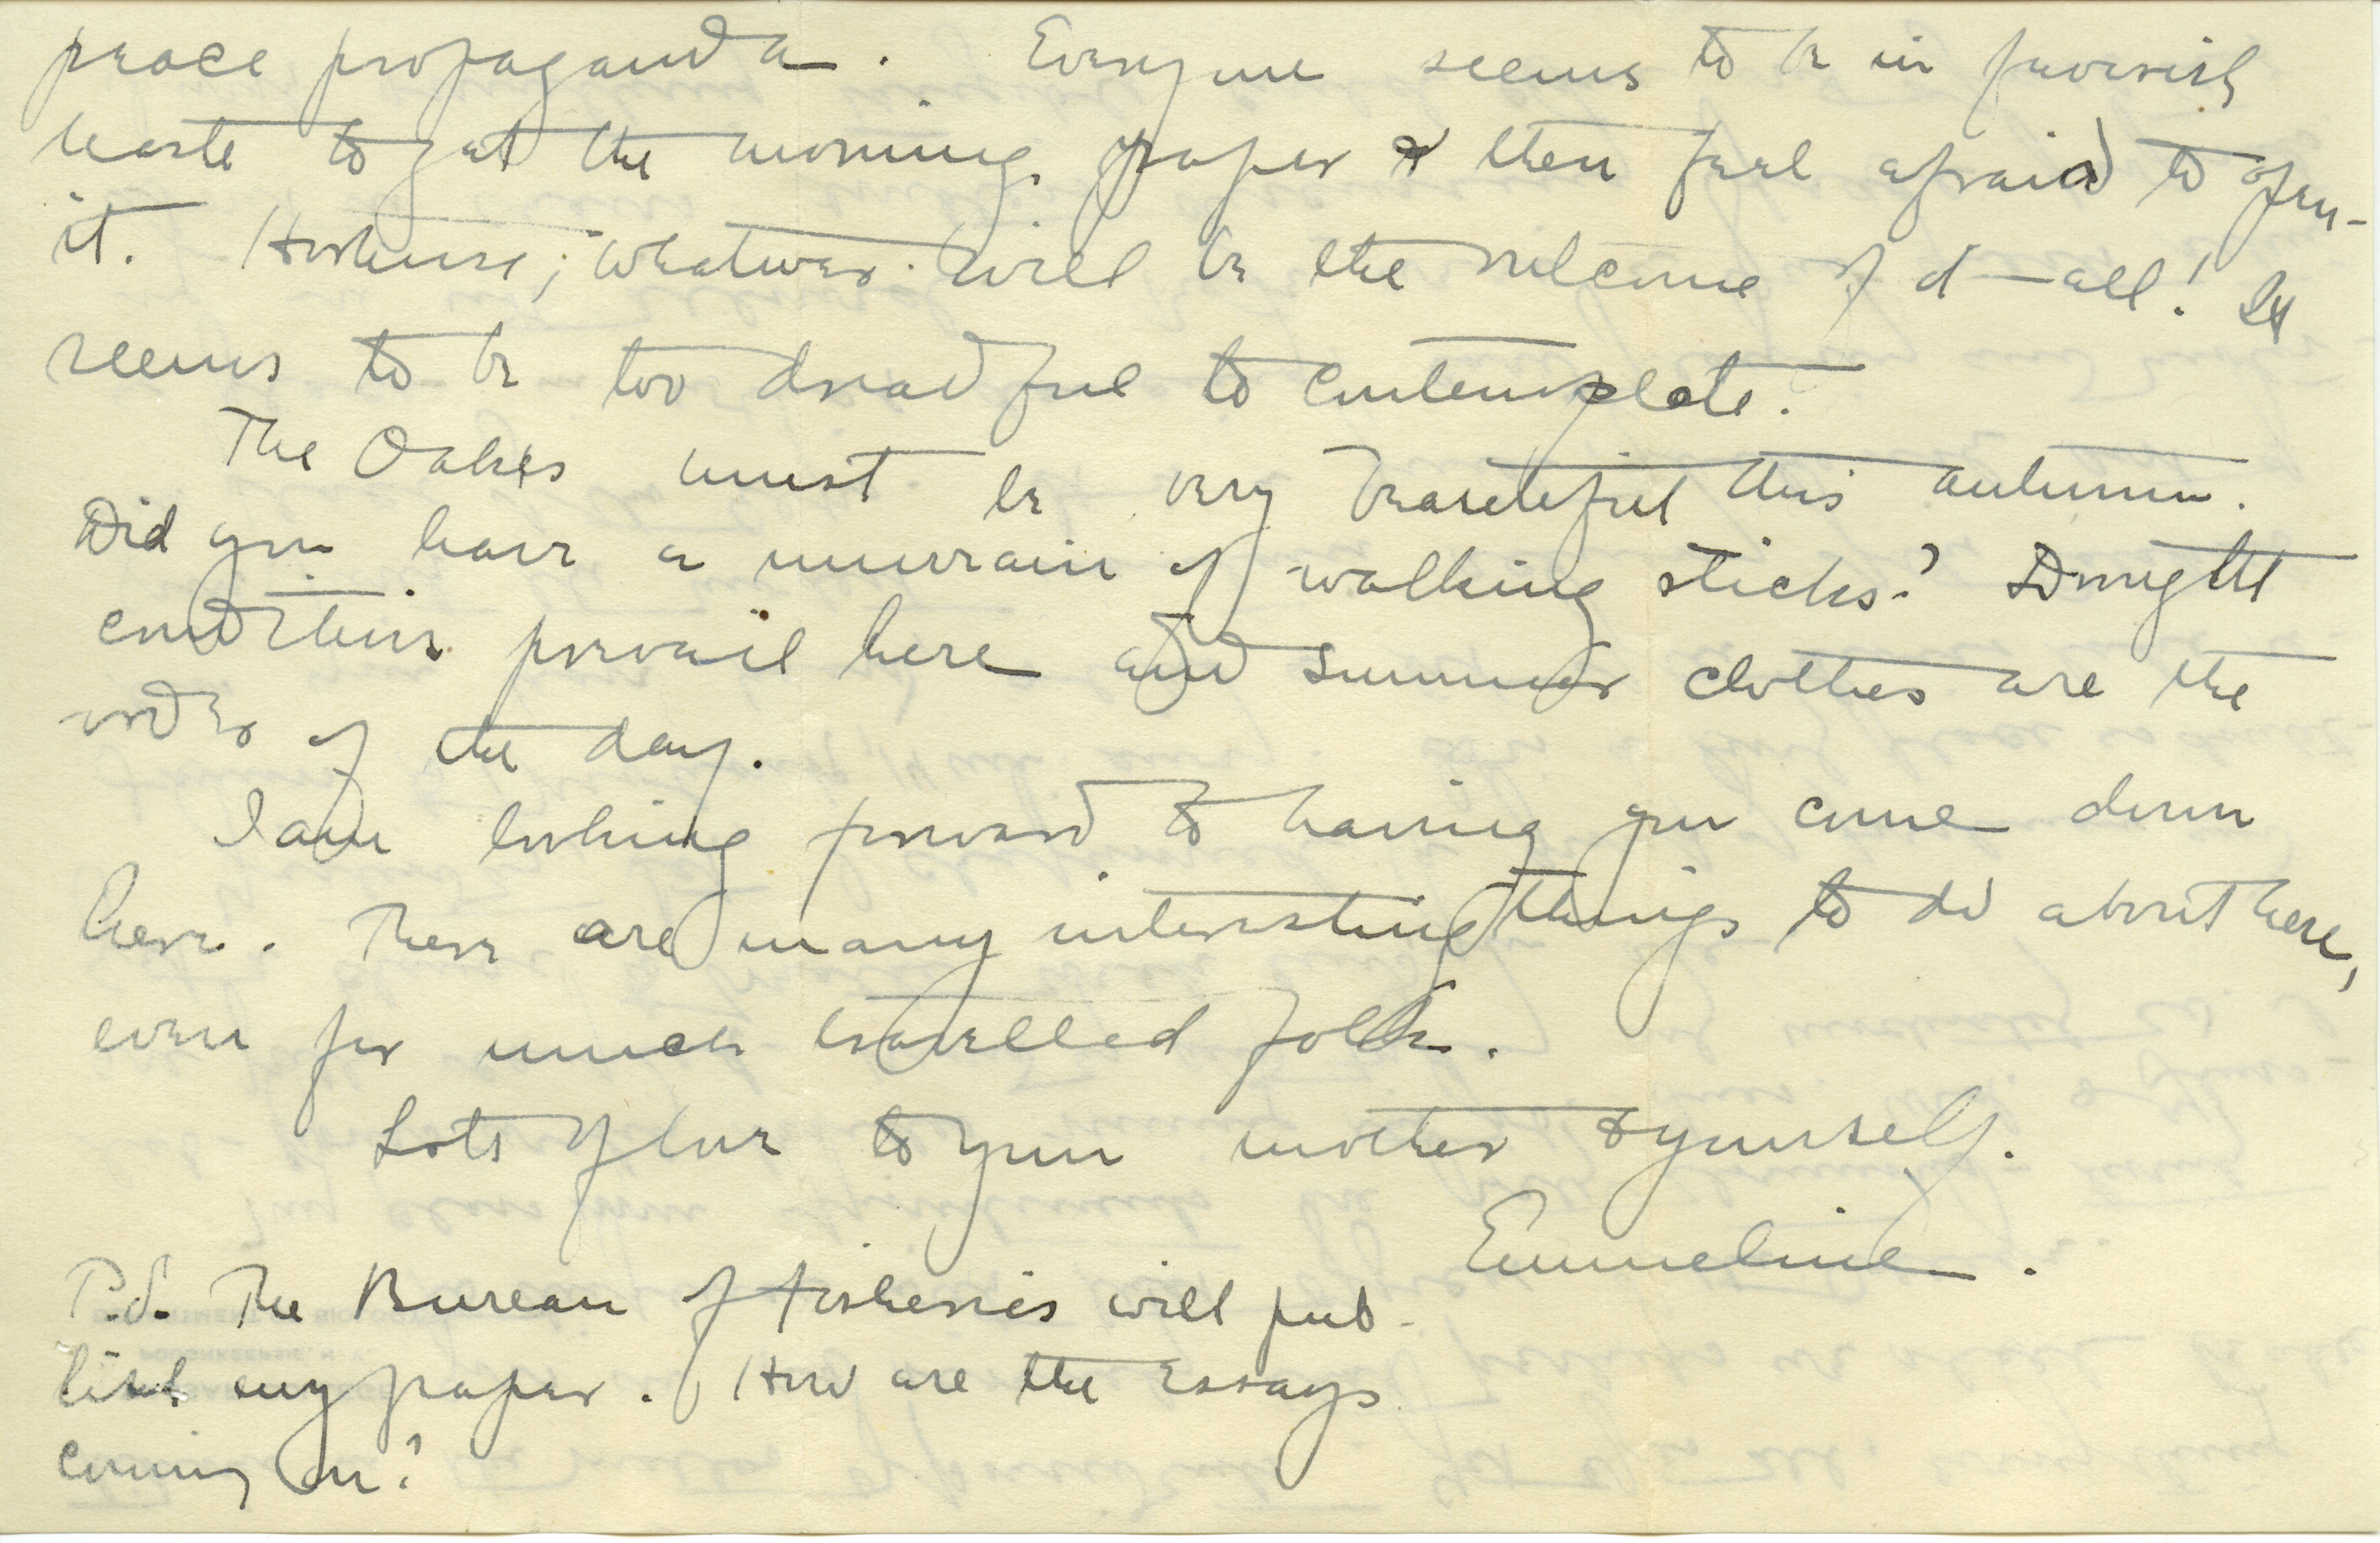 peace propaganda. Everyone seems to be in feverish
haste to get the morning paper & then feel afraid to open
it. ; whatever will be the outcome of it all! It
seems to be too dreadful to contemplate.
The Oakes must be very beautiful this autumn.
Did you have a of walking sticks? Drought
conditions prevail here and summer clothes are the
order of the day.
I am looking forward to having you come down
here. There are many interesting things to do about here,
even for much travelled folk.
Lots of love to your mother & yourself.
Emmeline.
P.S. The Bureau of Fisheries will pub-
lish my paper. How are the Essays
coming on?